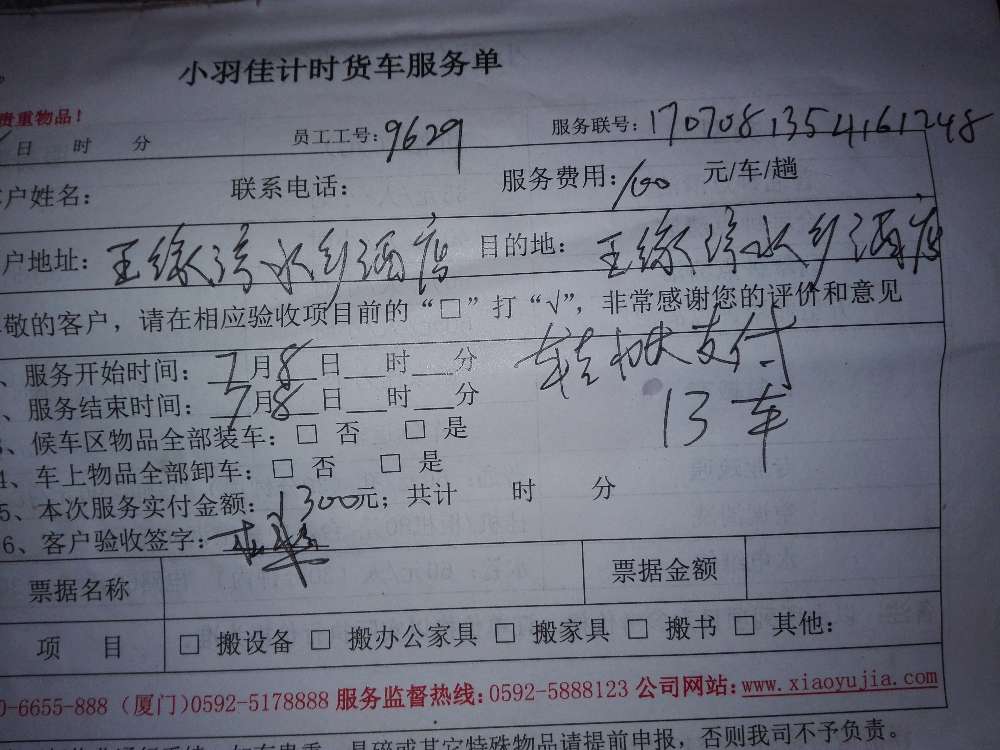 小羽佳计时货车服务单
贵重物品！
日 时 分 员工工号：9629 服务联号：1707081354161248
客户姓名： 联系电话： 服务费用：100 元/车/趟
户地址：水乡酒店 目的地：水乡酒店
尊敬的客户，请在相应验收项目前的“□”打“√”，非常感谢您的评价和意见
、服务开始时间：7月8日___时___分 支付
、服务结束时间：7月8日___时___分 13车
、候车区物品全部装车：□ 否 □ 是
4、车上物品全部卸车：□ 否 □ 是
5、本次服务实付金额：1300元；共计 时 分
6、客户验收签字：
票据名称 票据金额
项 目 □ 搬设备 □ 搬办公家具 □ 搬家具 □ 搬书 □ 其他：
0-6655-888（厦门）0592-5178888 服务监督热线：0592-5888123 公司网站：www.xiaoyujia.com
易碎或其它特殊物品请提前申报，否则我司不予负责。